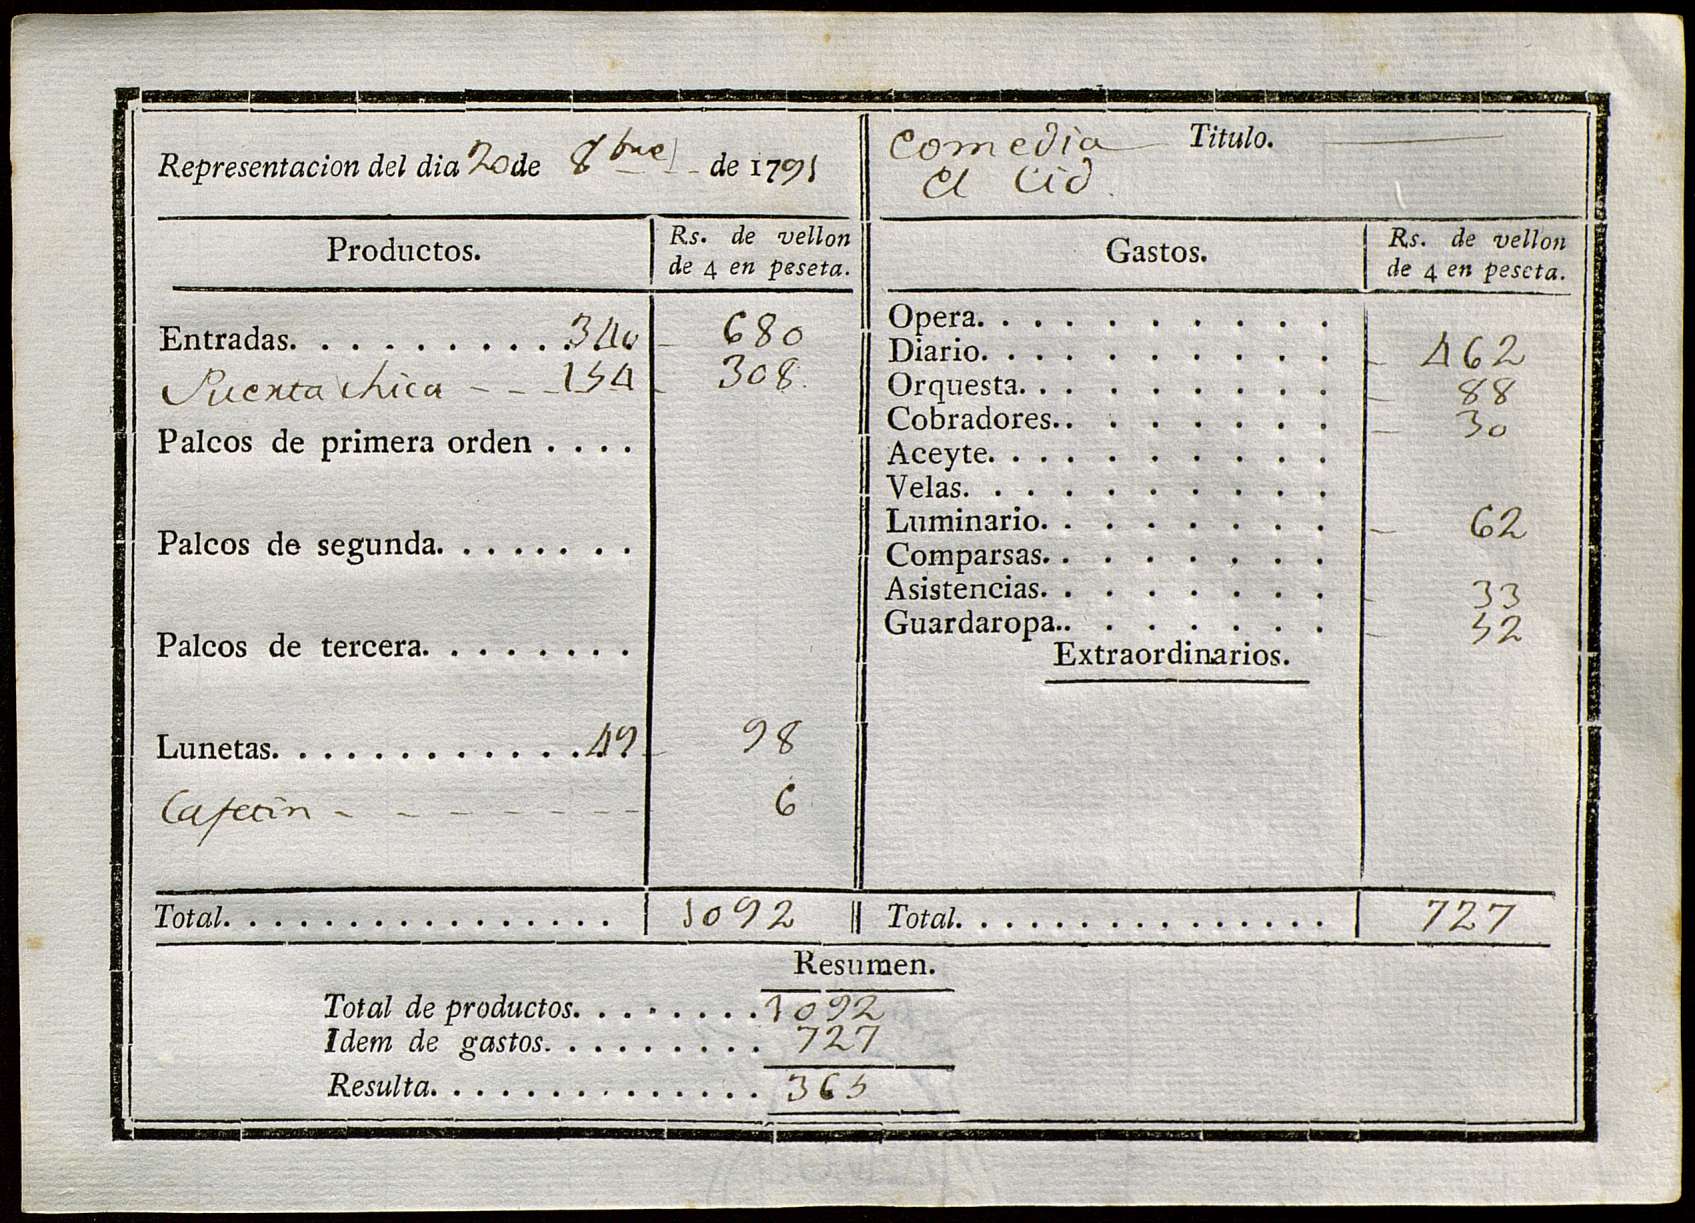 Representacion del dia 20 de 8bre de 1791
Comedia Titulo.
El Cid
Productos.
Rs. de vellon
de 4 en peseta.
Entradas. 340 680
Puerta chica 154 308
Palcos de primera orden
Palcos de segunda.
Palcos de tercera.
Lunetas. 49 98
Cafetin 6
Total. 1092
Gastos.
Rs. de vellon
de 4 en peseta.
Opera.
Diario. 462
Orquesta. 88
Cobradores. 30
Aceyte.
Velas.
Luminario. 62
Comparsas.
Asistencias. 33
Guardaropa. 52
Extraordinarios.
Total. 727
Resumen.
Total de productos. 1092
Idem de gastos. 727
Resulta. 365